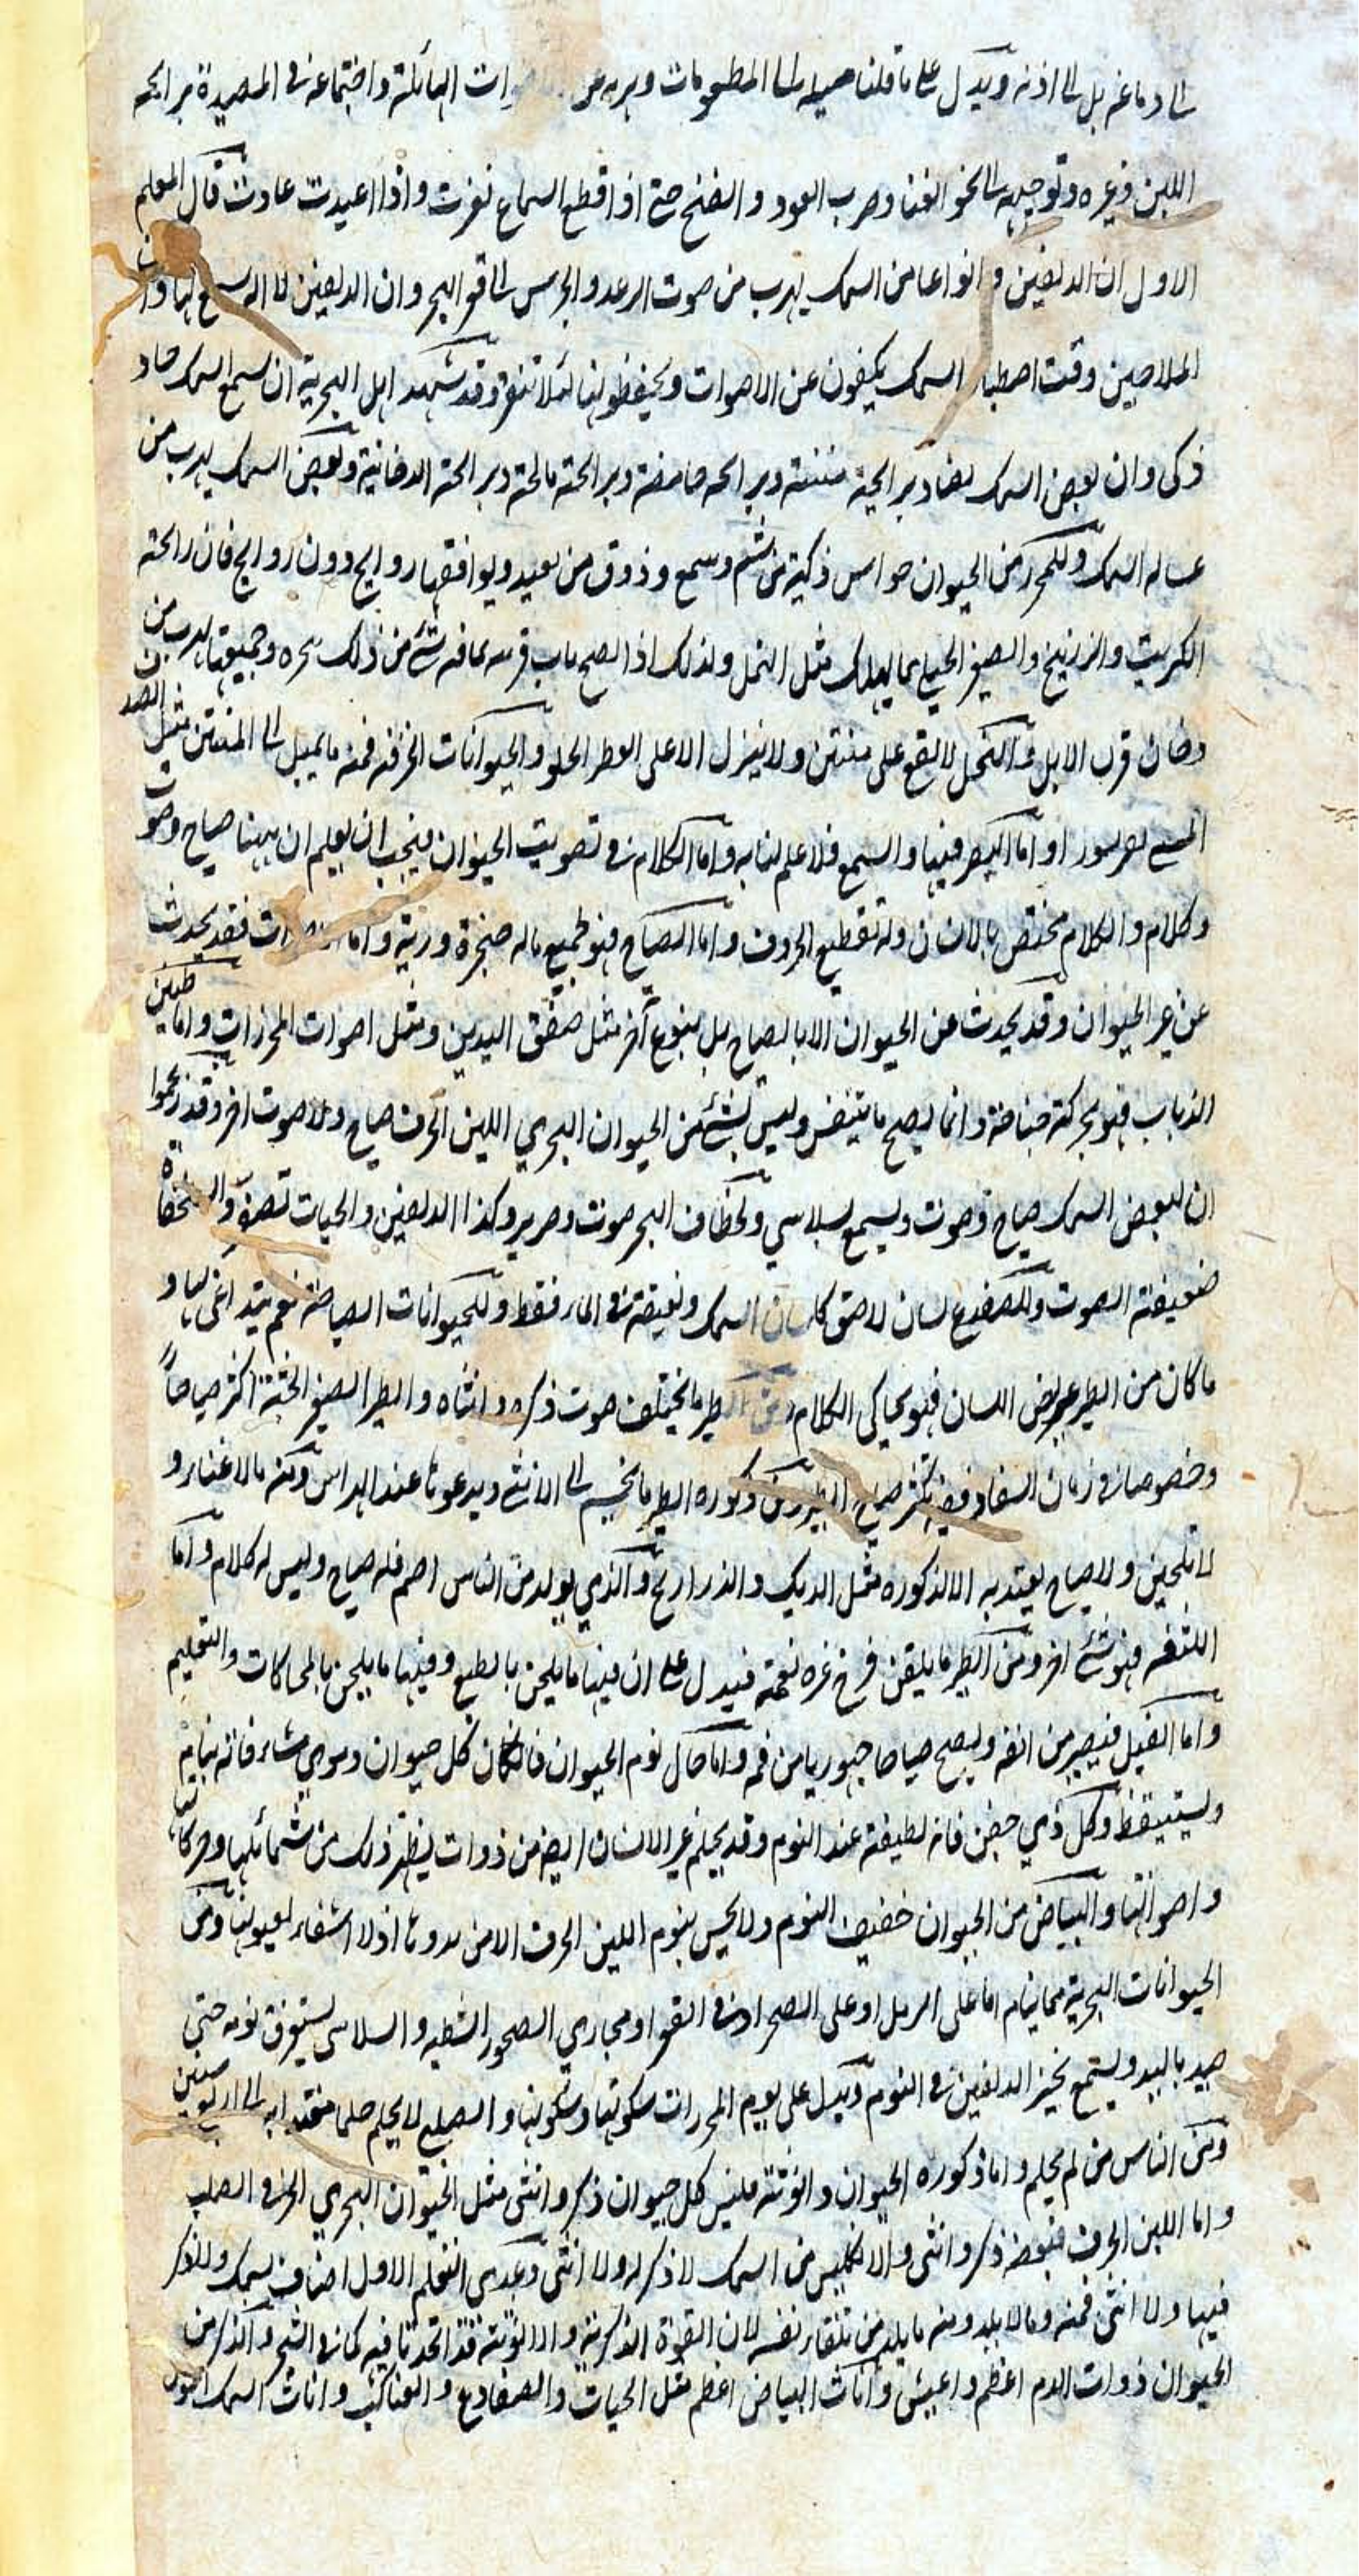 الى دماغه بل الى اذنه ويدل على ما قلنا ميله الى المطعومات وهربه من الاصوات الهائلة واجتماعه في المصيدة برائحة
اللبن وغيره وتوجهه الى نحو الغناء وضرب العود والصنج حتى اذا قطع السماع نفرت واذا اعيدت عادت قال المعلم
الاول ان الدلفين وانواعا من السمك يهرب من صوت الرعد والجرس الى قعر البحر وان الدلفين لها وان
الملاحين وقت اصطياد السمك يكفون عن الاصوات ويحفظونها لئلا تنفر وقد شهد اهل البحرية ان سمع السمك حاد
ذكي وان بعض السمك يصاد برائحة منتنة وبرائحة حامضة وبرائحة مالحة وبرائحة الدخانية وبعض السمك يهرب من
غسالة السمك وللمحرز من الحيوان حواس ذكية من شم وسمع وذوق من بعيد ويوافقها روايح دون روايح فان رائحة
الكبريت والزرنيخ والصيغر الجبلي مما يهلك مثل النمل ولذلك اذا شيء من ذلك وجميعها يهرب من
دخان قرن الابل والنحل لا يقع على منتن ولا ينزل الا على العطر الحلو والحيوانات الخزفية فمنه ما يميل الى المنتن مثل الصد
اما البصر فيها والسمع فلا علم لنا به واما الكلام في تصويت الحيوان فيجب ان يعلم ان ههنا صياح وصوت
وكلام والكلام مختص بالانسان وله تقطيع الحروف واما الصياح فهو لجميع ماله حنجرة ورية واما الاصوات فقد يحدث
عن غير الحيوان وقد يحدث عن الحيوان الا بالصياح بل بنوع آخر مثل صفق اليدين ومثل اصوات المحرزات واما طنين
الذباب فهو بحركة جناحه وانما يصيح ما يتنفس وليس لشيء من الحيوان البحري اللين الخرف صياح ولا صوت اخر وقد زعموا
ان لبعض السمك صياح وصوت ويسمع لسلاسي ولخطاف البحر صوت وصرير وكذا الدلفين والحيات تصفر والسلحفاة
ضعيفة الصوت وللضفدع لسان لاصق كلسان السمك ونقيقه في الماء فقط وللحيوانات الصياحة نغم يتداعى بها و
ما كان من الطير عريض اللسان فهو يحاكي الكلام ومن الطير ما يختلف صوت ذكره وانثاه والطير الصغير الجثة اكثر صياحاً
وخصوصا في زمان السفاد ففيه يكثر صياح الطير ومن ذكورة الطير ما يجيء الى الانثى ويدعوها عند الهراس ومنه ما لا غناء و
لا تلحين ولا صياح يعتد به الا لذكوره مثل الديك والدراريج والذي يولد من الناس اصم فله صياح وليس له كلام واما
اللثغة فهو شيء اخر ومن الطير ما يلقن فرخ غيره نغمة فيدل على ان فيها ما يلحن بالطبع وفيها ما يلحن بالمحاكات والتعليم
واما الفيل فيصير من انفه ويصيح صياحا جهوريا من فمه واما حال نوم الحيوان فان كان كل حيوان دموي مشاء فانه ينام
ويستيقظ وكل ذي جفن فانه يطبقه عند النوم وقد يحلم غير الانسان ايضا من ذوات يظهر ذلك من شمائلها وحركاتها
واصواتها والبياض من الحيوان خفيف النوم ولا يحس بنوم اللين الخرف الا من هدوئها اذ لا اشفار لعيونها ومن
الحيوانات البحرية مما ينام اما على الرمل او على الصخر او في القعر او مجاري الصخور الشطية والسلاسي يستغرق نومه حتى
صيد باليد ويستمع نخير الدلفين في النوم ويدل على نوم المحرزات سكوتها وسكونها والصلع لا يحلم حلما الى اربع سنين
ومن الناس من لم يحلم واما ذكوره الحيوان وانوثته فليس كل حيوان ذكر وانثى مثل الحيوان البحري الخزف الصلب
واما اللين الخرف فبعضه ذكر وانثى والانكليس من السمك لا ذكر له ولا انثى وعد المعلم الاول اصناف سمك ولا ذكر
فيها ولا انثى فمنه ما لا يلد ومنه ما يلد من تلقاء نفسه لان القوة الذكرية والانوثية قد اتحدتا فيه كما في الشجر والذكر من
الحيوان ذوات الدم اعظم واعيش واناث البياض اعظم مثل الحيات والضفادع والعناكب واناث السمك اطول